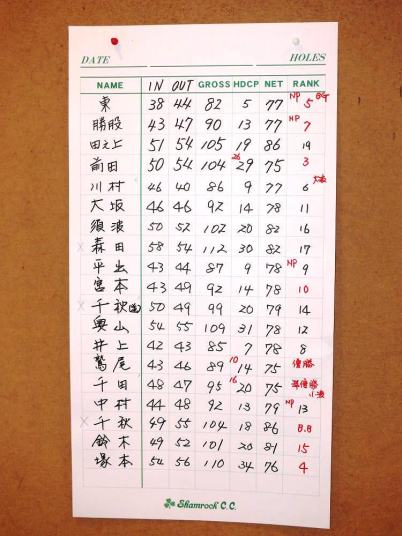 DATE HOLES
NAME IN OUT GROSS HDCP NET RANK
東 38 44 82 5 77 NP 5 BG
勝股 43 47 90 13 77 NP 7
田之上 51 54 105 19 86 19
前田 50 54 104 26 29 75 3
川村 46 40 86 9 77 6 大波
大坂 46 46 92 14 78 11
須波 50 52 102 20 82 16
x 森田 58 54 112 30 82 17
平出 43 44 87 9 78 NP 9
宮本 43 49 92 14 78 10
x 千秋 50 49 99 20 79 14
奥山 54 55 109 31 78 12
井上 42 43 85 7 78 8
鷲尾 43 46 89 10 14 75 優勝
千田 48 47 95 16 20 75 準優勝 小波
中村 44 48 92 13 79 NP 13
x 千秋 49 55 104 18 86 B.B
鈴木 49 52 101 20 81 15
塚本 54 56 110 34 76 4
Shamrock C.C.